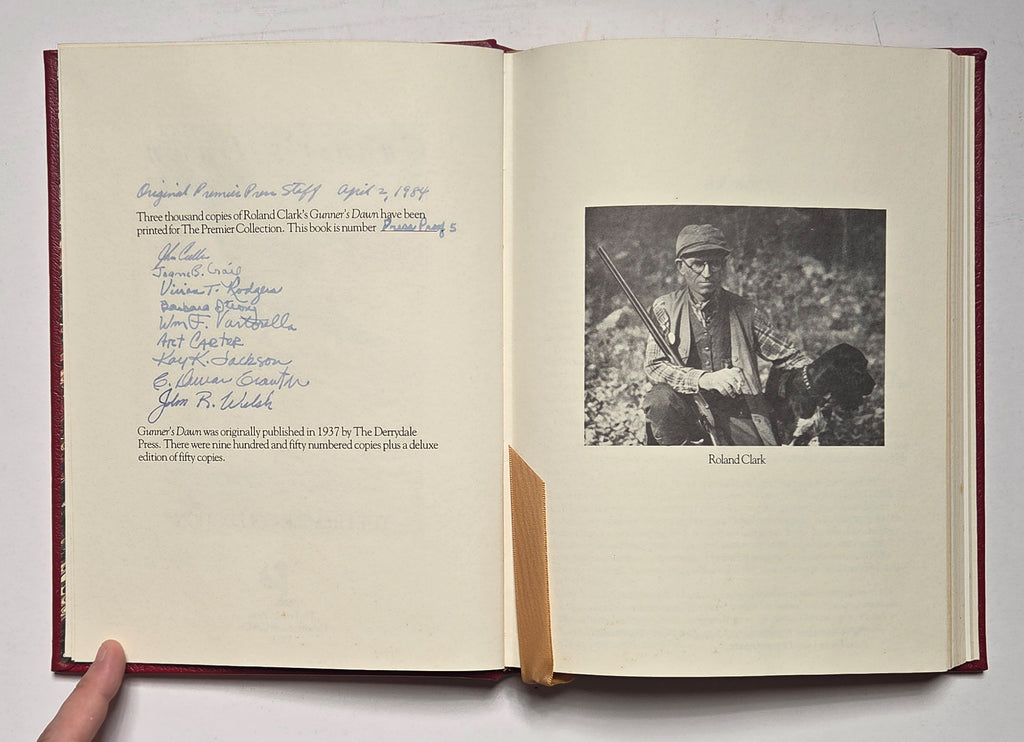 Original Premier Press Staff April 2, 1984
Three thousand copies of Roland Clark's Gunner's Dawn have been
printed for The Premier Collection. This book is number Press Proof 5
John
Joan B. Craig
Vivian T. Rodgers
Barbara Strong
Wm F. Vartorella
ART CARTER
Kay K. Jackson
C.
John R. Welsh
Gunner's Dawn was originally published in 1937 by The Derrydale
Press. There were nine hundred and fifty numbered copies plus a deluxe
edition of fifty copies.
Roland Clark